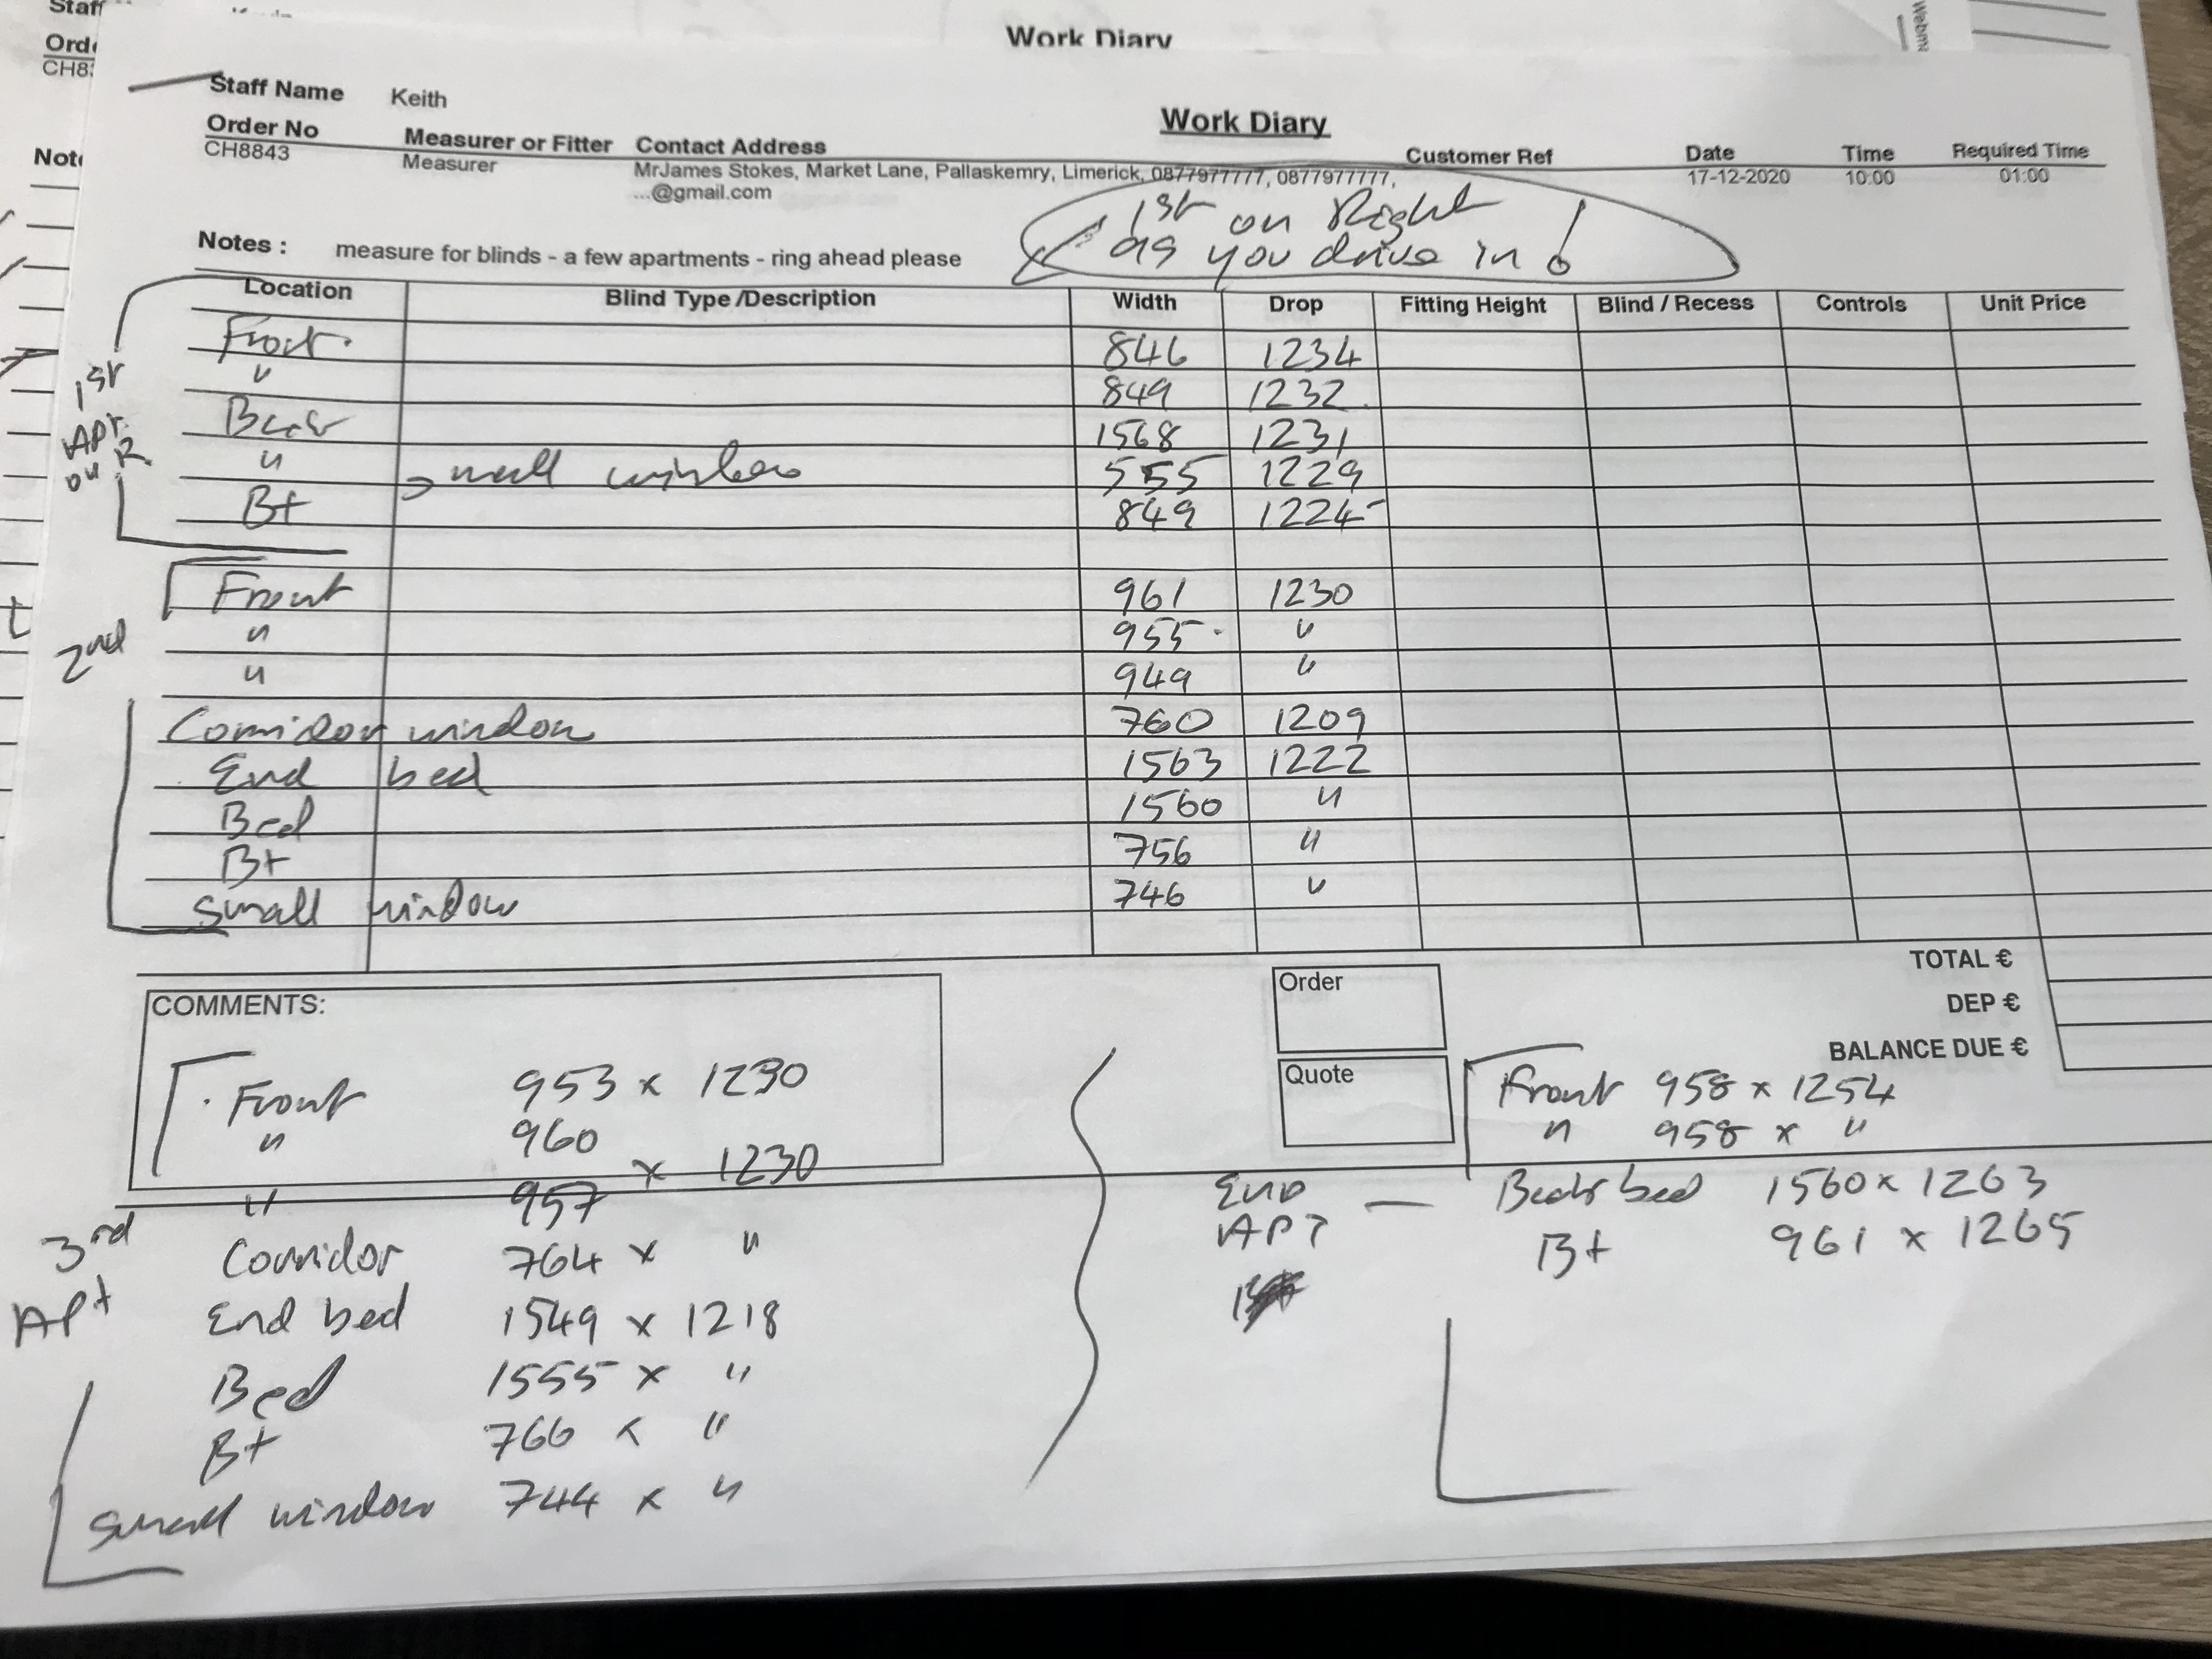 Staff
Orde
CH8
Note
Webma
Work Diary
Staff Name Keith
Work Diary
Order No Measurer or Fitter Contact Address Customer Ref Date Time Required Time
CH8843 Measurer MrJames Stokes, Market Lane, Pallaskemry, Limerick, 0877977777, 0877977777, 17-12-2020 10:00 01:00
...@gmail.com
1st on Right
as you drive in !
Notes : measure for blinds - a few apartments - ring ahead please
Location Blind Type /Description Width Drop Fitting Height Blind / Recess Controls Unit Price
1st APt. on R.
Front 846 1234
" 849 1232
Back 1568 1231
" small window 555 1229
Bt 849 1224
2nd
Front 961 1230
" 955 "
" 949 "
Corridor window 760 1209
End bed 1563 1222
Bed 1560 "
Bt 756 "
small window 746 "
TOTAL €
DEP €
BALANCE DUE €
COMMENTS:
Order
Quote
3rd APt
Front 953 x 1230
" 960
x 1230
" 957
Corridor 764 x "
End bed 1549 x 1218
Bed 1555 x "
Bt 766 x "
small window 744 x "
END APT —
Front 958 x 1254
" 958 x "
Back bed 1560 x 1263
Bt 961 x 1265